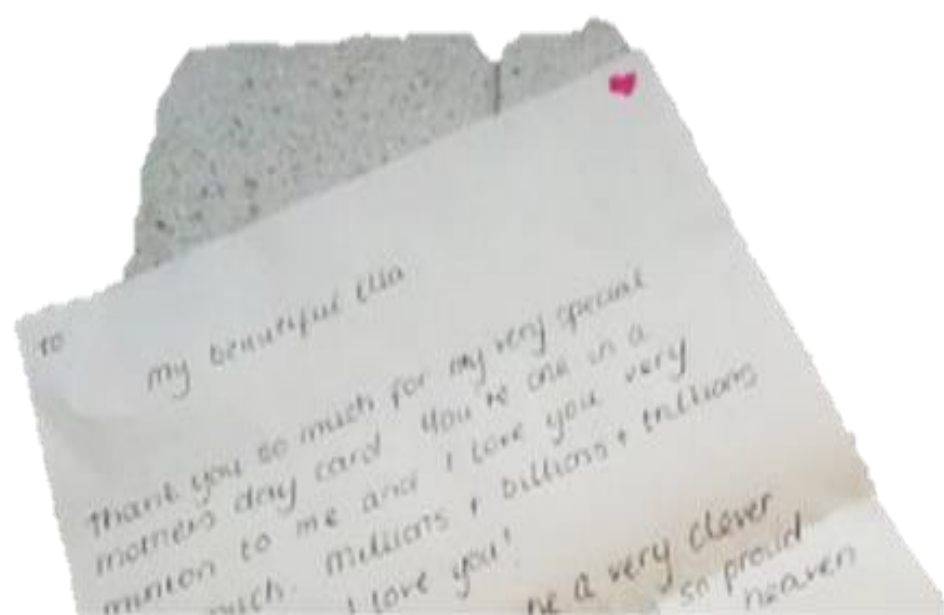 To
My beautiful Ella
Thank you so much for my very special
mothers day card You're one in a
million to me and I love you very
much. Millions + billions + trillions
I love you!
be a very clever
so proud
heaven